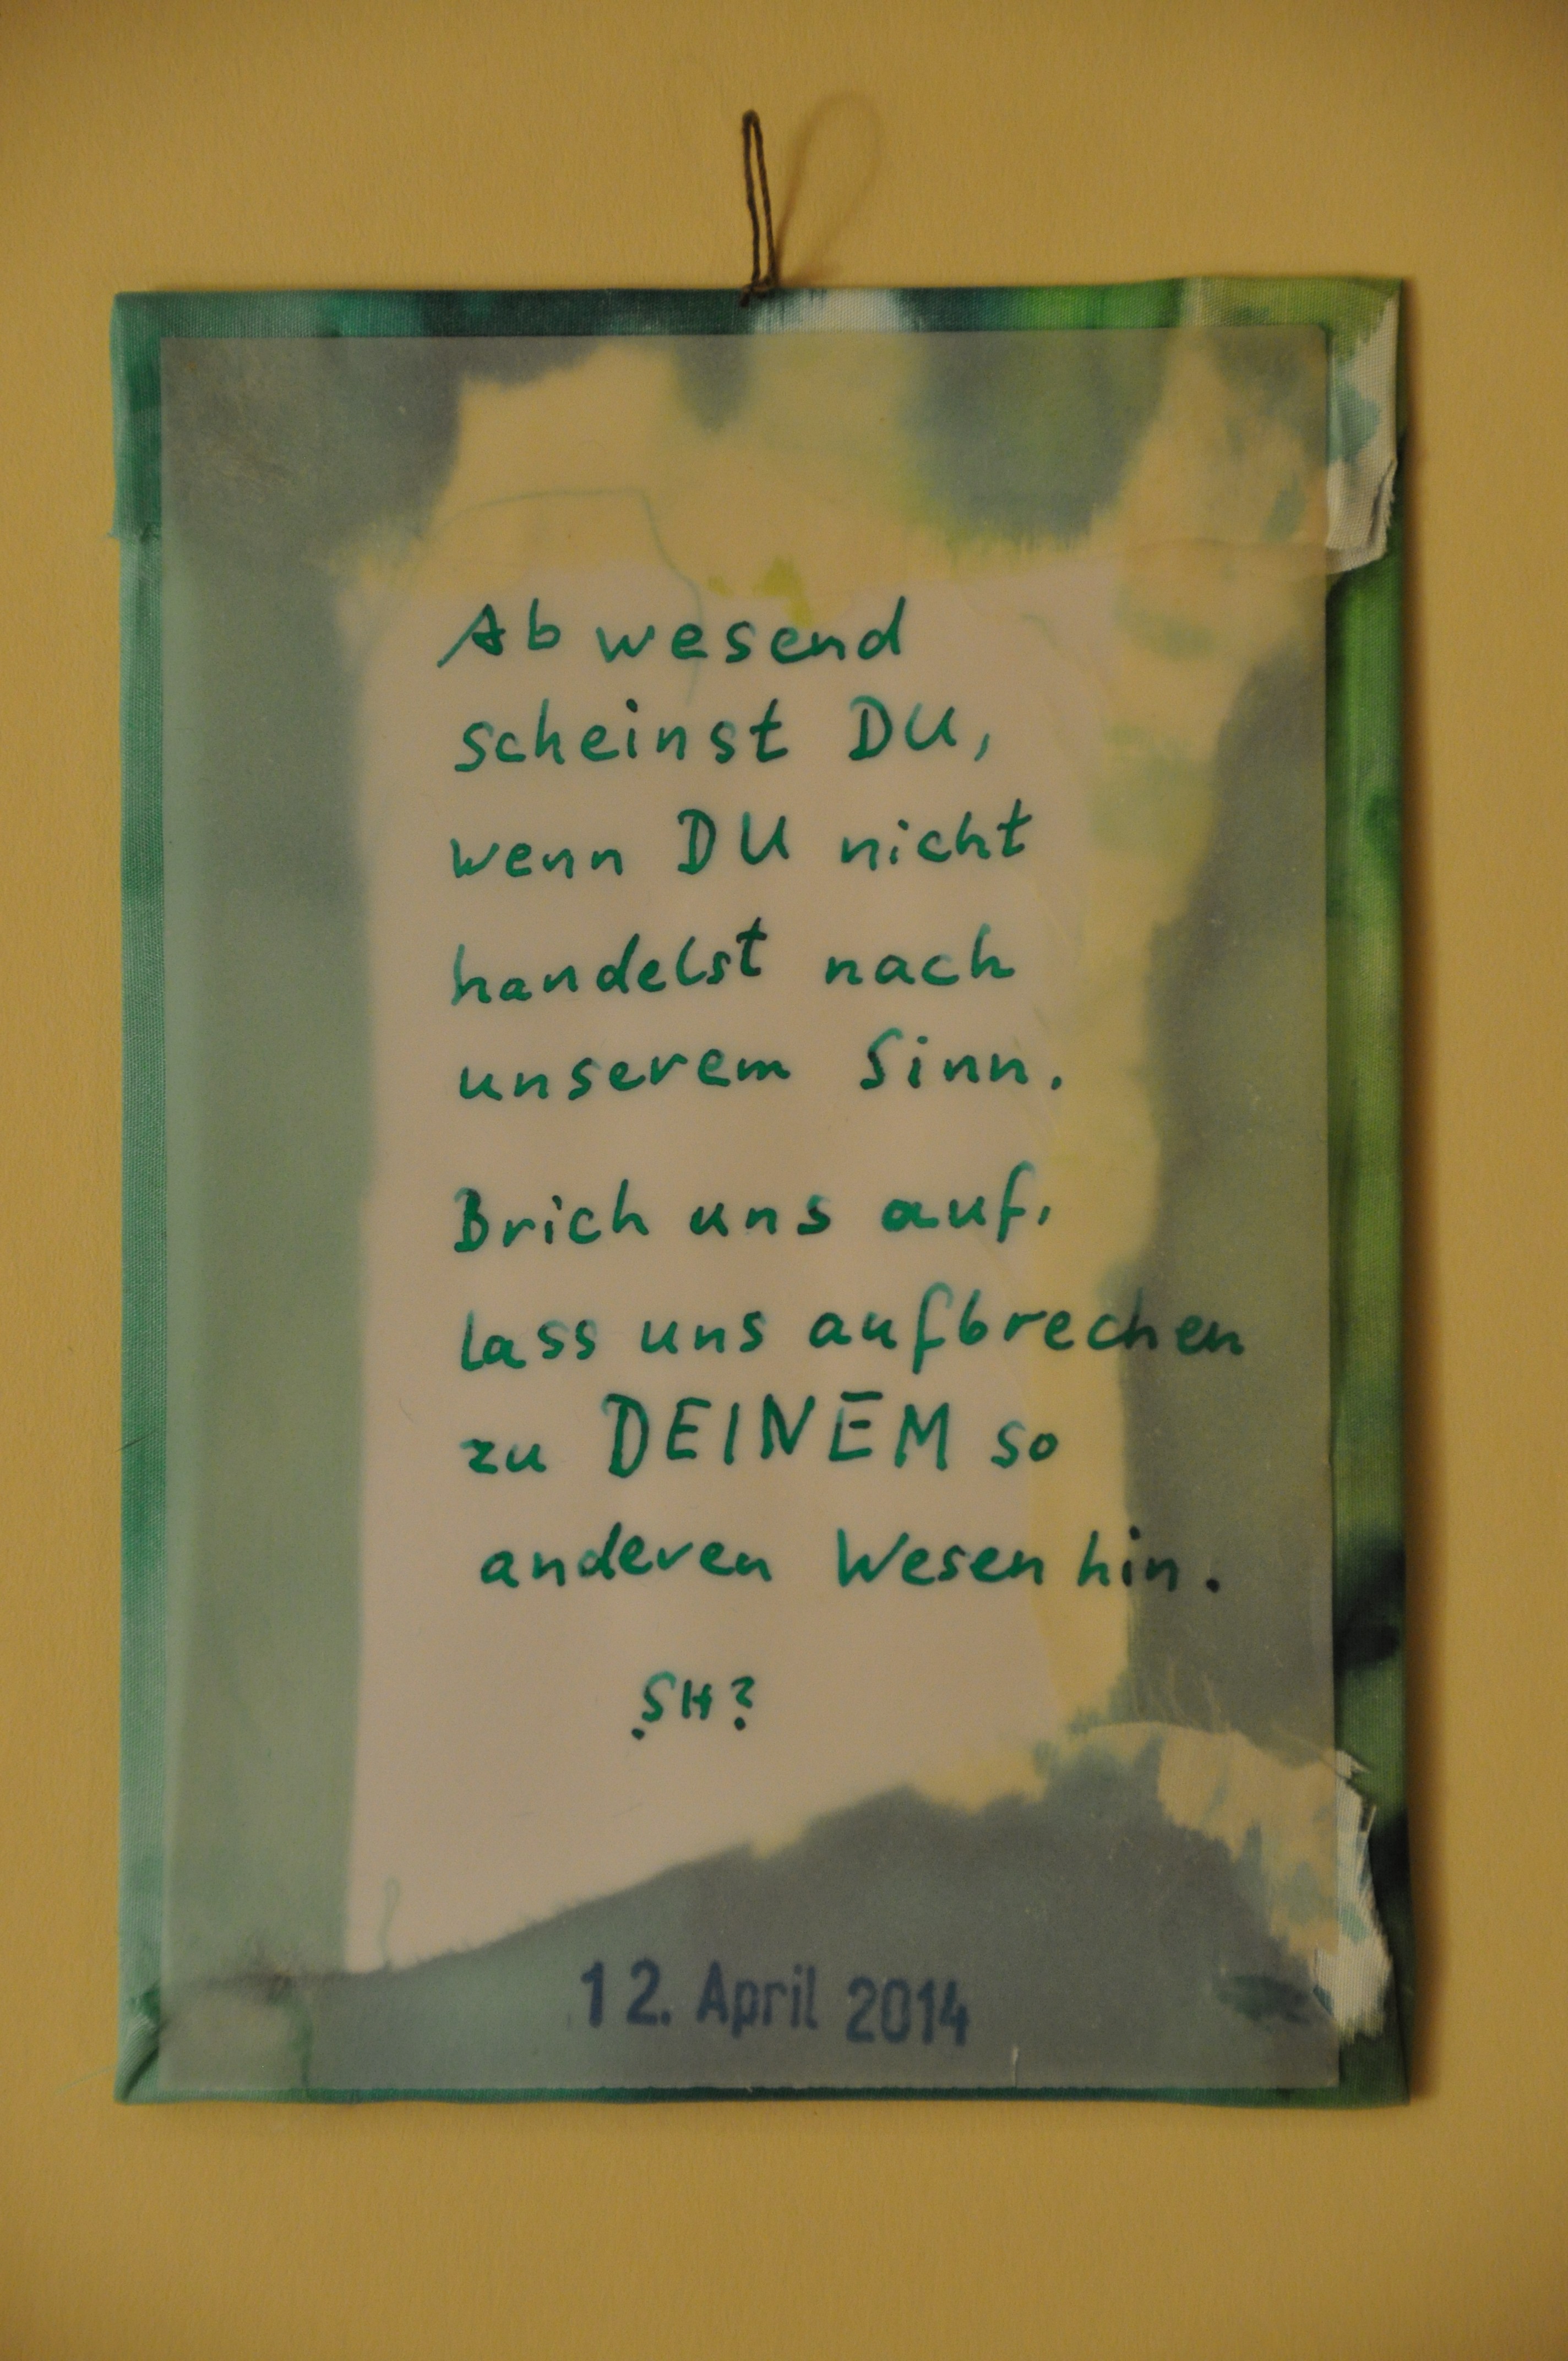 Abwesend
scheinst DU,
wenn DU nicht
handelst nach
unserem Sinn.
Brich uns auf,
lass uns aufbrechen
zu DEINEM so
anderen Wesen hin.
SH?
12. April 2014